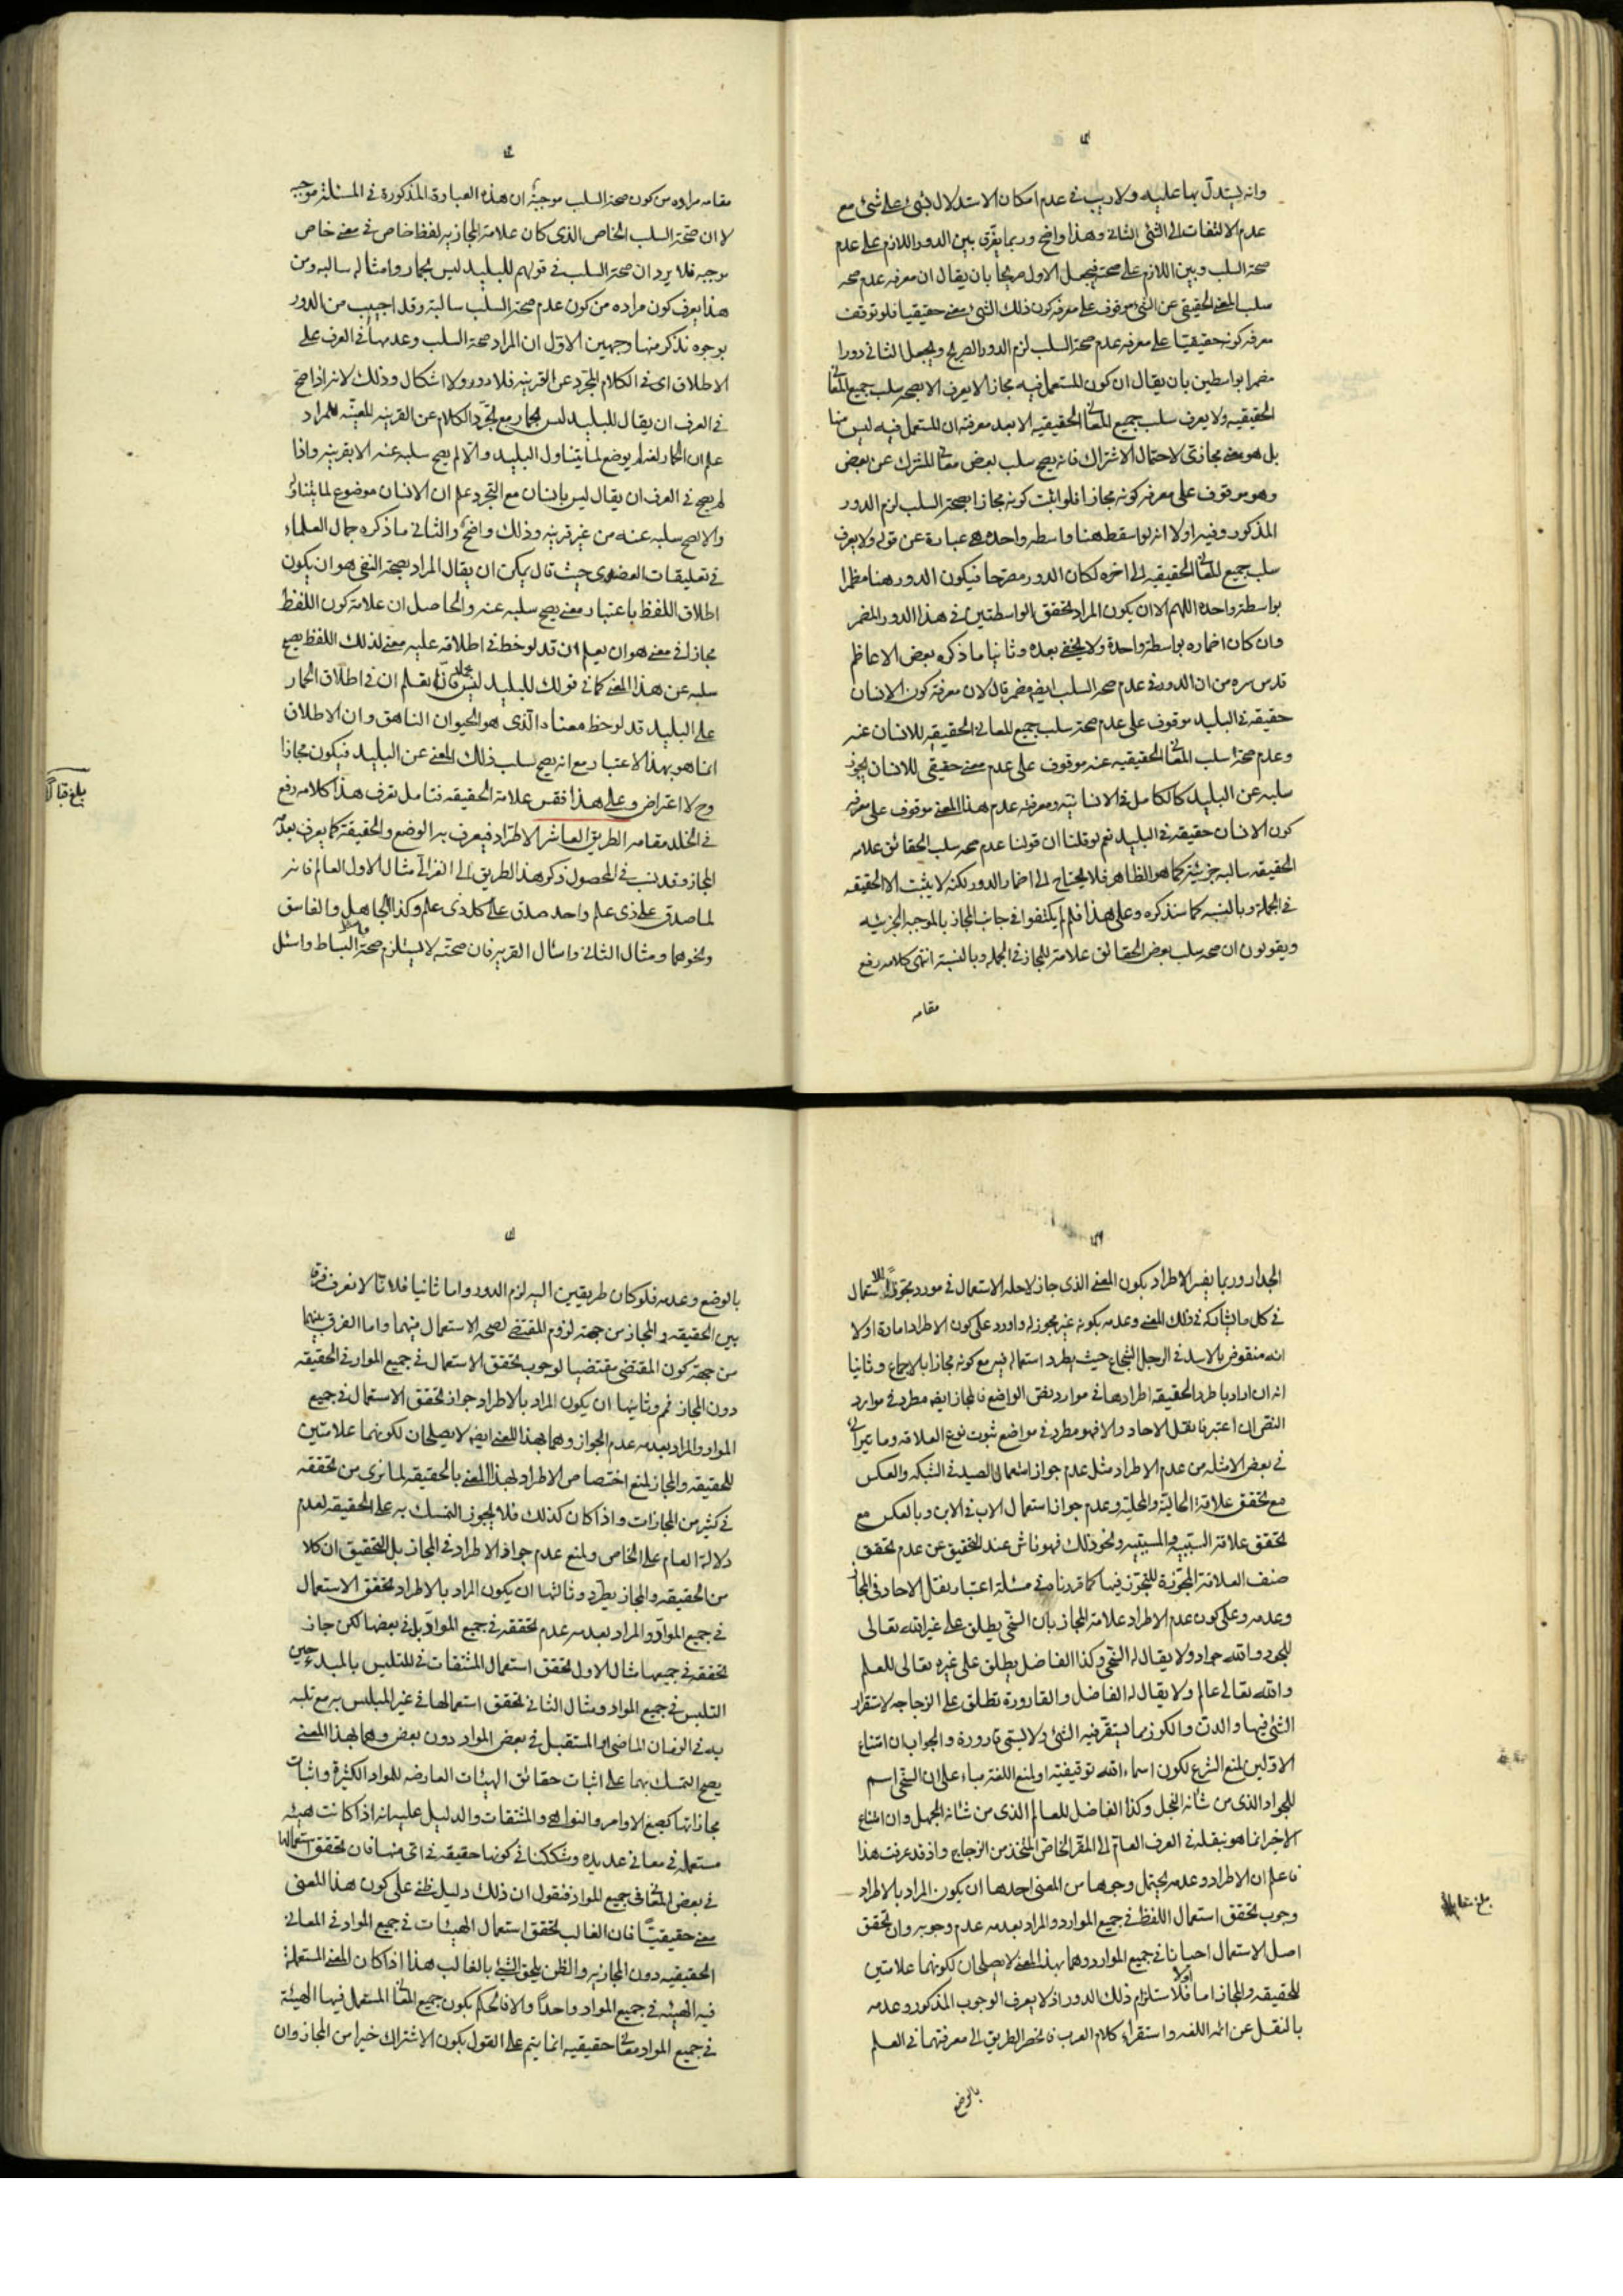 وانه يستدل بها عليه ولا ريب فى عدم امكان الاستدلال بشئ على شئ مع
عدم الالتفات الى الشئ الثانى وهذا واضح وربما يفرق بين الدور اللازم على عدم
صحة السلب وبين اللازم على صحته فيجعل الاول صريحا بان يقال ان معرفه عدم صحه
سلب المعنى الحقيقى عن الشئ موقوف على معرفه كون ذلك الشئ معنى حقيقيا فلو توقف
معرفه كونه حقيقيا على معرفه عدم صحة السلب لزم الدور الصريح ويجعل الثانى دورا
مضمرا بواسطتين بان يقال ان كون المستعمل فيه مجازا لا يعرف الا بصحه سلب جميع المعانى
الحقيقيه ولا يعرف سلب جميع المعانى الحقيقيه الا بعد معرفته ان المستعمل فيه ليس منها
بل هو معنى مجازى لاحتمال الاشتراك فانه يصح سلب بعض معانى المشترك عن بعض
وهو موقوف على معرفه كونه مجازا فلو اثبت كونه مجازا بصحة السلب لزم الدور
المذكور وفيه اولا انه لو اسقط هنا واسطه واحده هى عبارة عن قوله ولا يعرف
سلب جميع المعانى الحقيقيه الى اخره لكان الدور مصرحا فيكون الدور هنا مضمرا
بواسطة واحده اللهم الا ان يكون المراد تحقق الواسطتين فى هذا الدور المضمر
وان كان اضماره بواسطة واحدة ولا يخفى بعده وثانيا ما ذكره بعض الاعاظم
قدس سره من ان الدور فى عدم صحه السلب ايضه مضمر قال لان معرفة كون الانسان
حقيقه فى البليد موقوف على عدم صحة سلب جميع المعانى الحقيقيه للانسان عنه
وعدم صحة سلب المعانى الحقيقيه عنه موقوف على عدم معنى حقيقى للانسان يجوز
سلبه عن البليد كالكامل فى الانسانيه ومعرفه عدم هذا المعنى موقوف على معرفه
كون الانسان حقيقه فى البليد نعم لو قلنا ان قولنا عدم صحه سلب الحقائق علامه
الحقيقه سالبه جزئية كما هو الظاهر فلا يحتاج الى اضمار الدور لكنه لا يثبت الا الحقيقه
فى الجملة وبالنسبه كما سنذكره وعلى هذا فلم لم يكتفوا فى جانب المجاز بالموجبه الجزئيه
ويقولون ان صحه سلب بعض الحقائق علامة للمجاز فى الجمله وبالنسبة انتهى كلامه رفع
مقامه
مقامه مراده من كون صحة السلب موجبة ان هذه العبارة المذكورة فى المسئلة موجبه
لا ان صحة السلب الخاص الذى كان علامة المجازيه لفظ خاص فى معنى خاص
موجبه فلا يرد ان صحة السلب فى قولهم للبليد ليس بحمار وامثاله سالبه ومن
هذا يعرف كون مراده من كون عدم صحة السلب سالبة وقد اجيب من الدور
بوجوه نذكر منها وجهين الاول ان المراد صحة السلب وعدمها فى العرف على
الاطلاق اى فى الكلام المجرد عن القرينه فلا دور ولا اشكال وذلك لانه اذا صح
فى العرف ان يقال للبليد ليس بحمار مع تجرد الكلام عن القرينه المعينه للمراد
علم ان الحمار لفظ لم يوضع لما يتناول البليد والا لم يصح سلبه عنه الا بقرينه واذا
لم يصح فى العرف ان يقال ليس بانسان مع التجرد علم ان الانسان موضوع لما يتناوله
والا لصح سلبه عنه من غير قرينه وذلك واضح والثانى ما ذكره جمال العلماء
فى تعليقات العضدى حيث قال يمكن ان يقال المراد بصحة النفى هو ان يكون
اطلاق اللفظ باعتبار معنى يصح سلبه عنه والحاصل ان علامة كون اللفظ
مجازا فى معنى هو ان يعلم ان قد لوحظ فى اطلاقه عليه معنى لذلك اللفظ يصح
سلبه عن هذا المعنى كما فى قولك للبليد ليس بحمار فانا نعلم ان فى اطلاق الحمار
على البليد قد لوحظ معناه الذى هو الحيوان الناهق وان الاطلاق
انما هو بهذا الاعتبار مع انه يصح سلب ذلك المعنى عن البليد فيكون مجازا
وح لا اعتراض وعلى هذا فقس علامة الحقيقه فتامل تعرف هذا كلامه رفع
فى الخلد مقامه الطريق العاشر الاطراد فيعرف به الوضع والحقيقة كما يعرف بعدمه
المجاز وقد نسب فى المحصول ذكر هذا الطريق الى الغزالى مثال الاول العالم فانه
لما صدق على ذى علم واحد صدق على كل ذى علم وكذا الجاهل والفاسق
ونحوهما ومثال الثانى واسئال القرية فان صحته لا يستلزم صحة واسئل البساط واسئل
بلغ قبالا
الجدار وربما يفسر الاطراد بكون المعنى الذى جاز لاجله الاستعمال فى مورد مجوزا للاستعمال
فى كل ما يشاركه فى ذلك المعنى وعدمه بكونه غير مجوز له واورد على كون الاطراد امارة اولا
انه منقوض بالاسد فى الرجل الشجاع حيث يطرد استعماله فيه مع كونه مجازا بالاجماع وثانيا
انه ان اراد باطراد الحقيقه اطرادها فى موارد نص الواضع فالمجاز ايضه مطرد فى موارد
النص ان اعتبرنا نقل الاحاد والا فهو مطرد فى مواضع ثبوت نوع العلاقه وما تيرائى
فى بعض الامثله من عدم الاطراد مثل عدم جواز استعمال الصيد فى الشبكه والعكس
مع تحقق علاقة الحالية والمحلية وعدم جواز استعمال الاب فى الابن وبالعكس مع
تحقق علاقة السببيه والمسببيه ونحو ذلك فهو ناش عند التحقيق عن عدم تحقق
صنف العلاقة المجوزة للتجوز فيها كما قررناه فى مسئلة اعتبار نقل الاحاد فى المجاز
وعدمه وعلى كون عدم الاطراد علامة المجاز بان السخى يطلق على غير الله تعالى
للجود والله جواد ولا يقال له السخى وكذا الفاضل يطلق على غيره تعالى للعلم
والله تعالى عالم ولا يقال له الفاضل والقارورة تطلق على الزجاجه لاستقرار
الشئ فيها والدن والكوز مما يستقر فيه الشئ ولا يسمى قارورة والجواب ان امتناع
الاولين لمنع الشرع لكون اسماء الله توقيفية او لمنع اللغة بناء على ان السخى اسم
للجواد الذى من شانه البخل وكذا الفاضل للعالم الذى من شانه الجهل وان امتناع
الاخير انما هو بنقله فى العرف العام الى المقر الخاص المتخذ من الزجاج واذ قد عرفت هذا
فاعلم ان الاطراد وعدمه يحتمل وجوها من المعنى احدها ان يكون المراد بالاطراد
وجوب تحقق استعمال اللفظ فى جميع الموارد والمراد بعدمه عدم وجوبه وان تحقق
اصل الاستعمال احيانا فى جميع الموارد وهما بهذا المعنى لا يصلحان لكونهما علامتين
للحقيقه والمجاز اما اولا فلاستلزام ذلك الدور اذ لا يعرف الوجوب المذكور وعدمه
بالنقل عن ائمه اللغه واستقراء كلام العرب فانحصر الطريق الى معرفتهما فى العلم
بالوضع
بالوضع وعدمه فلو كان طريقين اليه لزم الدور واما ثانيا فلانا لا نعرف فرقا
بين الحقيقه والمجاز من جهة لزوم المقتضى لصحه الاستعمال فيهما واما الفرق بينهما
من جهة كون المقتضى مقتضيا لوجوب تحقق الاستعمال فى جميع الموارد فى الحقيقه
دون المجاز فم وثانيها ان يكون المراد بالاطراد جواز تحقق الاستعمال فى جميع
الموارد والمراد بعدمه عدم الجواز وهما بهذا المعنى ايضه لا يصلحان لكونهما علامتين
للحقيقه والمجاز لمنع اختصاص الاطراد بهذا المعنى بالحقيقه لما نرى من تحققه
فى كثير من المجازات واذا كان كذلك فلا يجوز التمسك به على الحقيقه لعدم
دلالة العام على الخاص ولمنع عدم جواز الاطراد فى المجاز بل التحقيق ان كلا
من الحقيقه والمجاز يطرد وثالثها ان يكون المراد بالاطراد تحقق الاستعمال
فى جميع المواد والمراد بعدمه عدم تحققه فى جميع المواد بل فى بعضها لكن جاز
تحققه فى جميعها مثال الاول تحقق استعمال المشتقات فى المتلبس بالمبدء حين
التلبس فى جميع المواد ومثال الثانى تحقق استعمالها فى غير المتلبس به مع تلبسه
به فى الزمان الماضى او المستقبل فى بعض المواد دون بعض وهما بهذا المعنى
يصح التمسك بهما على اثبات حقائق الهيئات العارضه للمواد الكثيرة واثبات
مجازاتها كصيغ الاوامر والنواهى والمشتقات والدليل عليه انه اذا كانت هيئه
مستعمله فى معانى عديده وشككنا فى كونها حقيقه فى اى منها فان تحقق استعمالها
فى بعض المعانى فى جميع المواد فنقول ان ذلك دليل ظنى على كون هذا المعنى
معنى حقيقيا فان الغالب تحقق استعمال الهيئات فى جميع المواد فى المعانى
الحقيقيه دون المجازيه والظن يلحق الشئ بالغالب هذا اذا كان المعنى المستعمله
فيه الهيئه فى جميع المواد واحدا والا فالحكم بكون جميع المعانى المستعمل فيها الهيئة
فى جميع المواد معانى حقيقيه انما يتم على القول بكون الاشتراك خيرا من المجاز وان